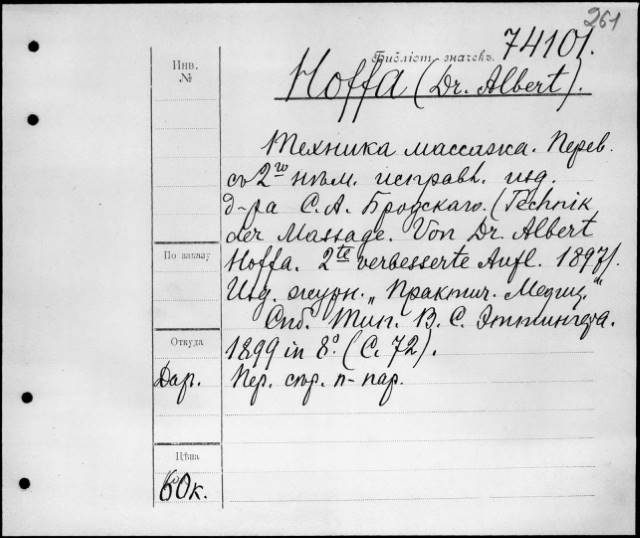 261
74101.
Инв.
№
Библіот. значекъ.
Hoffa (Dr. Albert).
Техника массажа. Перев.
съ 2го нѣм. исправл. изд.
д-ра С. А. Бродскаго. (Technik
der Massage. Von Dr. Albert
По заказу
Hoffa. 2te verbesserte Aufl. 1897).
Изд. журн. „Практич. Медиц."
Спб. Тип. В. С. Эттингера.
Откуда
1899 in 8°. (С. 72).
Дар.
Пер. стр. п-пар.
Цѣна
60к.